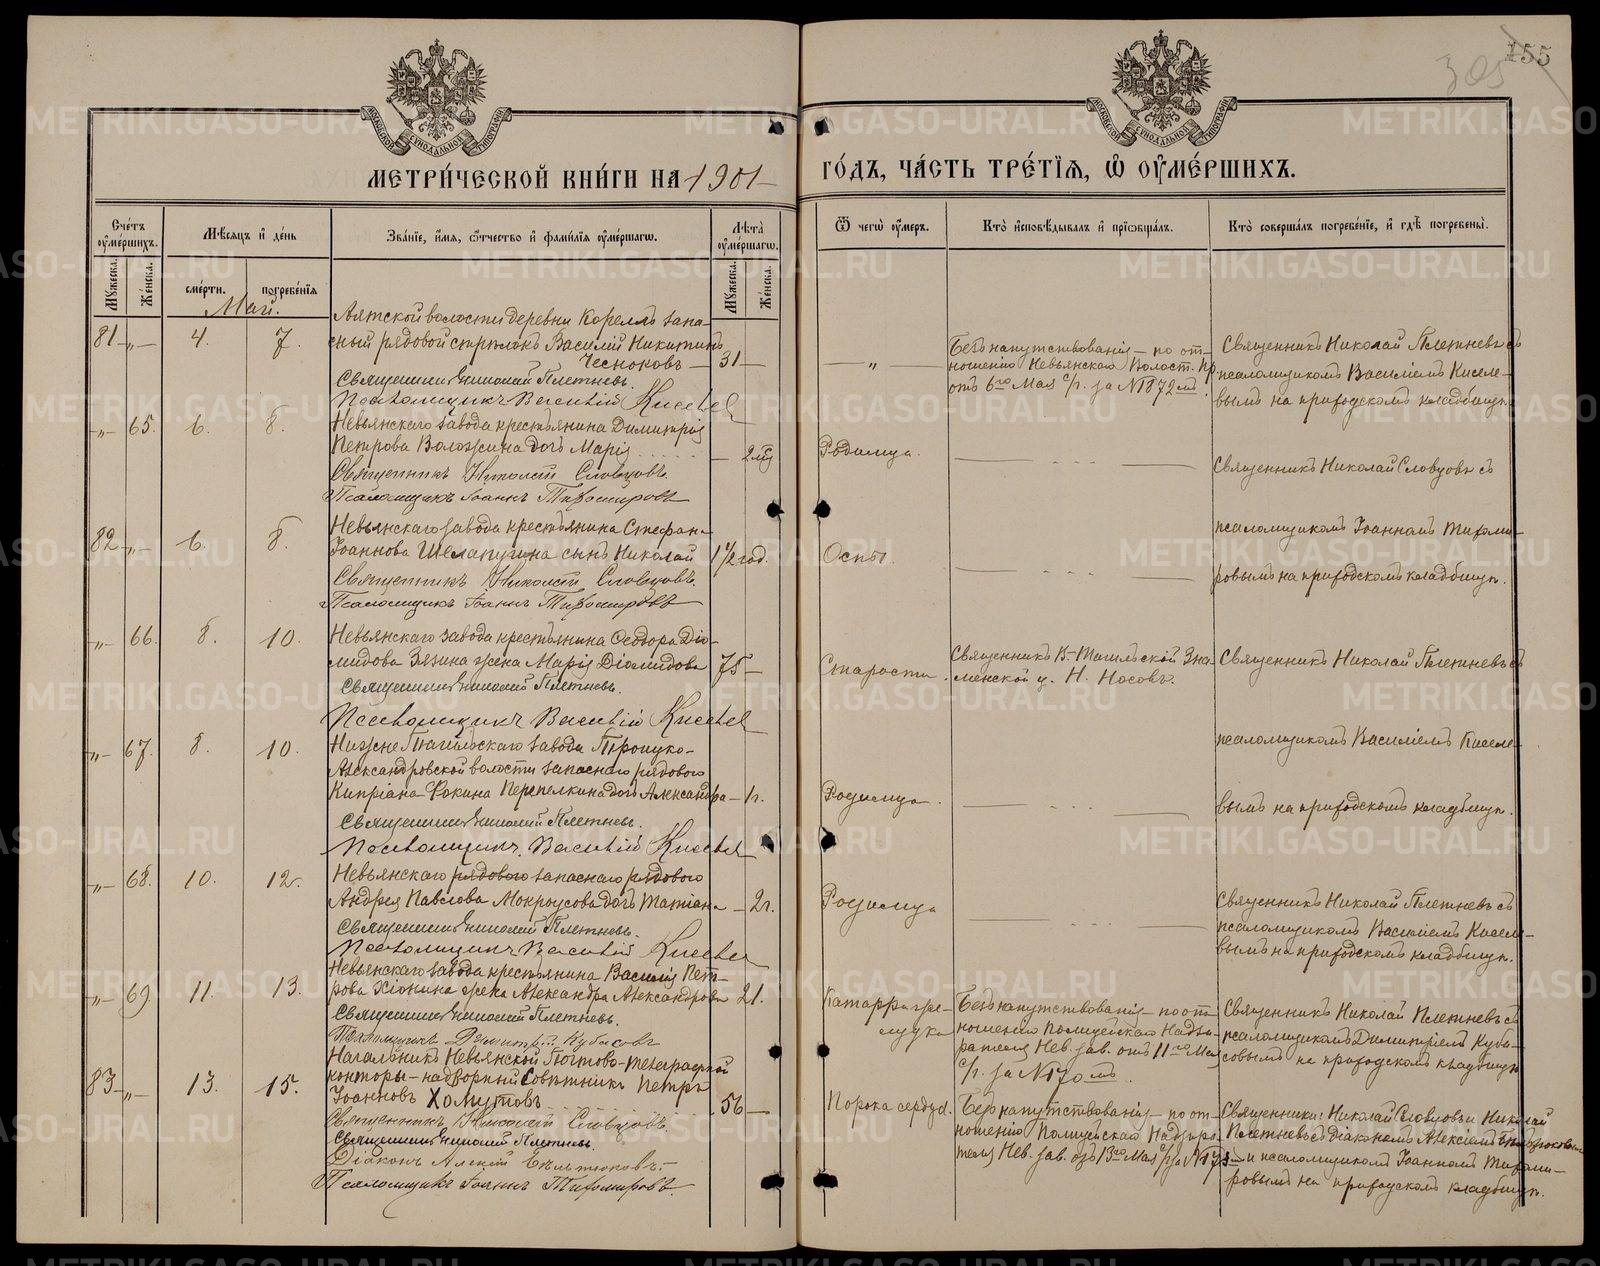 155
305
МЕТРИ́ЧЕСКОЙ КНИ́ГИ НА 1901
ГО́ДЪ, ЧА́СТЬ ТРЕ́ТІЯ, Ѡ҆ ОУ҆МЕ́РШИХЪ.
Сче́тъ оу҆ме́ршихъ.
Мѣ́сяцъ и҆ де́нь
Зва́ніе, и҆́мя, ѻ҆́тчество и҆ фами́лія оу҆ме́ршагѡ.
Лѣ́та оу҆ме́ршагѡ.
Ѿ чегѡ̀ оу҆́меръ.
Кто̀ и҆сповѣ́дывалъ и҆ прїѡбща́лъ.
Кто̀ соверша́лъ погребе́ніе, и҆ гдѣ̀ погребены̀.
Мꙋ́жеска.
Же́нска.
сме́рти.
погребе́нія
Мꙋ́жеска.
Же́нска.
Май.
81 „ 4. 7.
Аятской волости деревни Корелъ запа-
сный рядовой стрѣлокъ Василій Никитинъ
Чесноковъ 31
Священникъ Николай Плетневъ.
Псаломщикъ Василій Киселев
„
Безъ напутствованія – по от-
ношенію Невьянскаго Волост. Пр
отъ 6го Мая с/г. за №1872мъ.
Священникъ Николай Плетневъ съ
псаломщикомъ Василіемъ Киселе-
вымъ на приходскомъ кладбищѣ.
„ 65. 6. 8.
Невьянскаго завода крестьянина Димитрія
Петрова Воложина дочь Марія 2 мц
Священникъ Николай Словцовъ.
Псаломщикъ Іоаннъ Тихомировъ
Родимца.
Священникъ Николай Словцовъ съ
псаломщикомъ Іоанномъ Тихоми-
ровымъ на приходскомъ кладбищѣ.
82 „ 6. 8.
Невьянскаго завода крестьянина Стефана
Іоаннова Шелапугина сынъ Николай 1½ год.
Священникъ Николай Словцовъ.
Псаломщикъ Іоаннъ Тихомировъ
Оспы.
„ 66. 8. 10.
Невьянскаго завода крестьянина Ѳеодора Діо-
мидова Зязина жена Марія Діомидова 75
Священникъ Николай Плетневъ.
Псаломщикъ Василій Киселев
Старости.
Священникъ В-Тагильской Зна-
менской ц. Н. Носовъ.
Священникъ Николай Плетневъ съ
псаломщикомъ Василіемъ Киселе-
вымъ на приходскомъ кладбищѣ.
„ 67. 8. 10.
Нижне Тагильскаго завода Троицко-
Александровской волости запаснаго рядового
Кипріана Фокина Перепелкина дочь Александра 1 г.
Священникъ Николай Плетневъ.
Псаломщикъ Василій Киселев
Родимца.
„ 68. 10. 12.
Невьянскаго рядового запаснаго рядового
Андрея Павлова Мокроусова дочь Татіана 2 г.
Священникъ Николай Плетневъ.
Псаломщикъ Василій Киселев
Родимца
Священникъ Николай Плетневъ съ
псаломщикомъ Василіемъ Киселе-
вымъ на приходскомъ кладбищѣ.
„ 69. 11. 13.
Невьянскаго завода крестьянина Василія Пет-
рова Хіонина жена Александра Александрова 21.
Священникъ Николай Плетневъ.
Псаломщикъ Димитрій Кубасовъ
Катарра же-
лудка
Безъ напутствованія – по от-
ношенію Полицейскаго Надзи-
рателя Нев. зав. отъ 11го Мая
с/г. за №170мъ.
Священникъ Николай Плетневъ съ
псаломщикомъ Димитріемъ Куба-
совымъ на приходскомъ кладбищѣ
83 „ 13. 15.
Начальникъ Невьянской Почтово-телеграфной
конторы – надворный Совѣтникъ Петръ
Іоанновъ Хомутовъ 56
Священникъ Николай Словцовъ.
Священникъ Николай Плетневъ.
Діаконъ Алексій Бѣльтюковъ.
Псаломщикъ Іоаннъ Тихомировъ.
Порока сердца.
Безъ напутствованія – по от-
ношенію Полицейскаго Надзира-
теля Нев. зав. отъ 13го Мая с/г за №173
Священники: Николай Словцовъ и Николай
Плетневъ съ діакономъ Алексіемъ Бѣльтюковымъ
и псаломщикомъ Іоанномъ Тихоми-
ровымъ на приходскомъ кладбищѣ.
METRIKI.GASO-URAL.RU